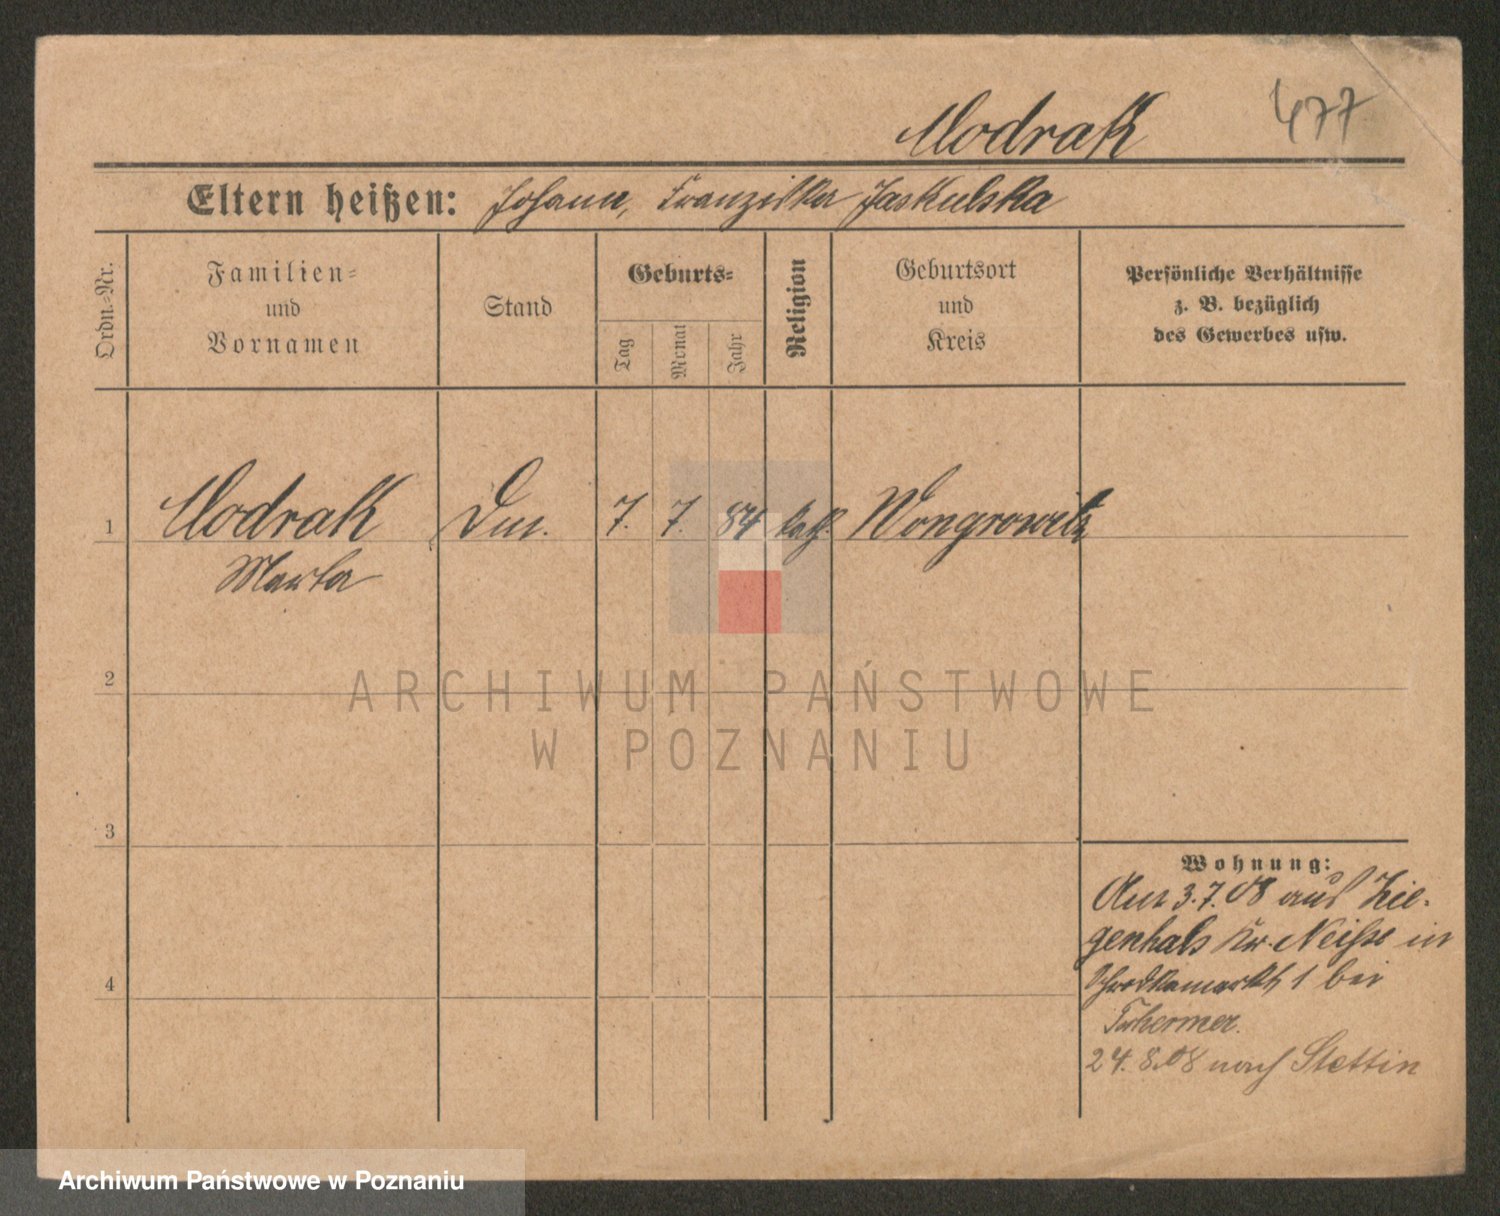 477
Modrak
Eltern heißen: Johann, Franziska Jaskulska
Ordn.-Nr.
Familien-
und
Vornamen
Stand
Geburts-
Tag
Monat
Jahr
Religion
Geburtsort
und
Kreis
Persönliche Verhältnisse
z. B. bezüglich
des Gewerbes usw.
1 Modrak 7. 7. 84 kath. Wongrowitz
Marta
2
3
4
Wohnung:
3.7.08 aus Zie-
genhals Kr. Neisse in
Schrodkamarkt 1 bei
24.8.08 nach Stettin
ARCHIWUM PAŃSTWOWE
W POZNANIU
Archiwum Państwowe w Poznaniu